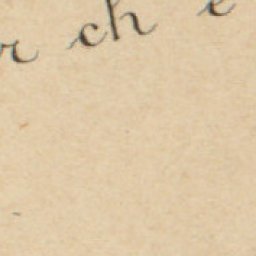 r ch e